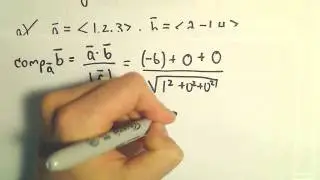 a) ā = < 1, 2, 3 > . b̄ = < 2 -1, 4 >
comp_ā b̄ = ā · b̄ / |ā| = (-6) + 0 + 0 / √1² + 0² + 0²